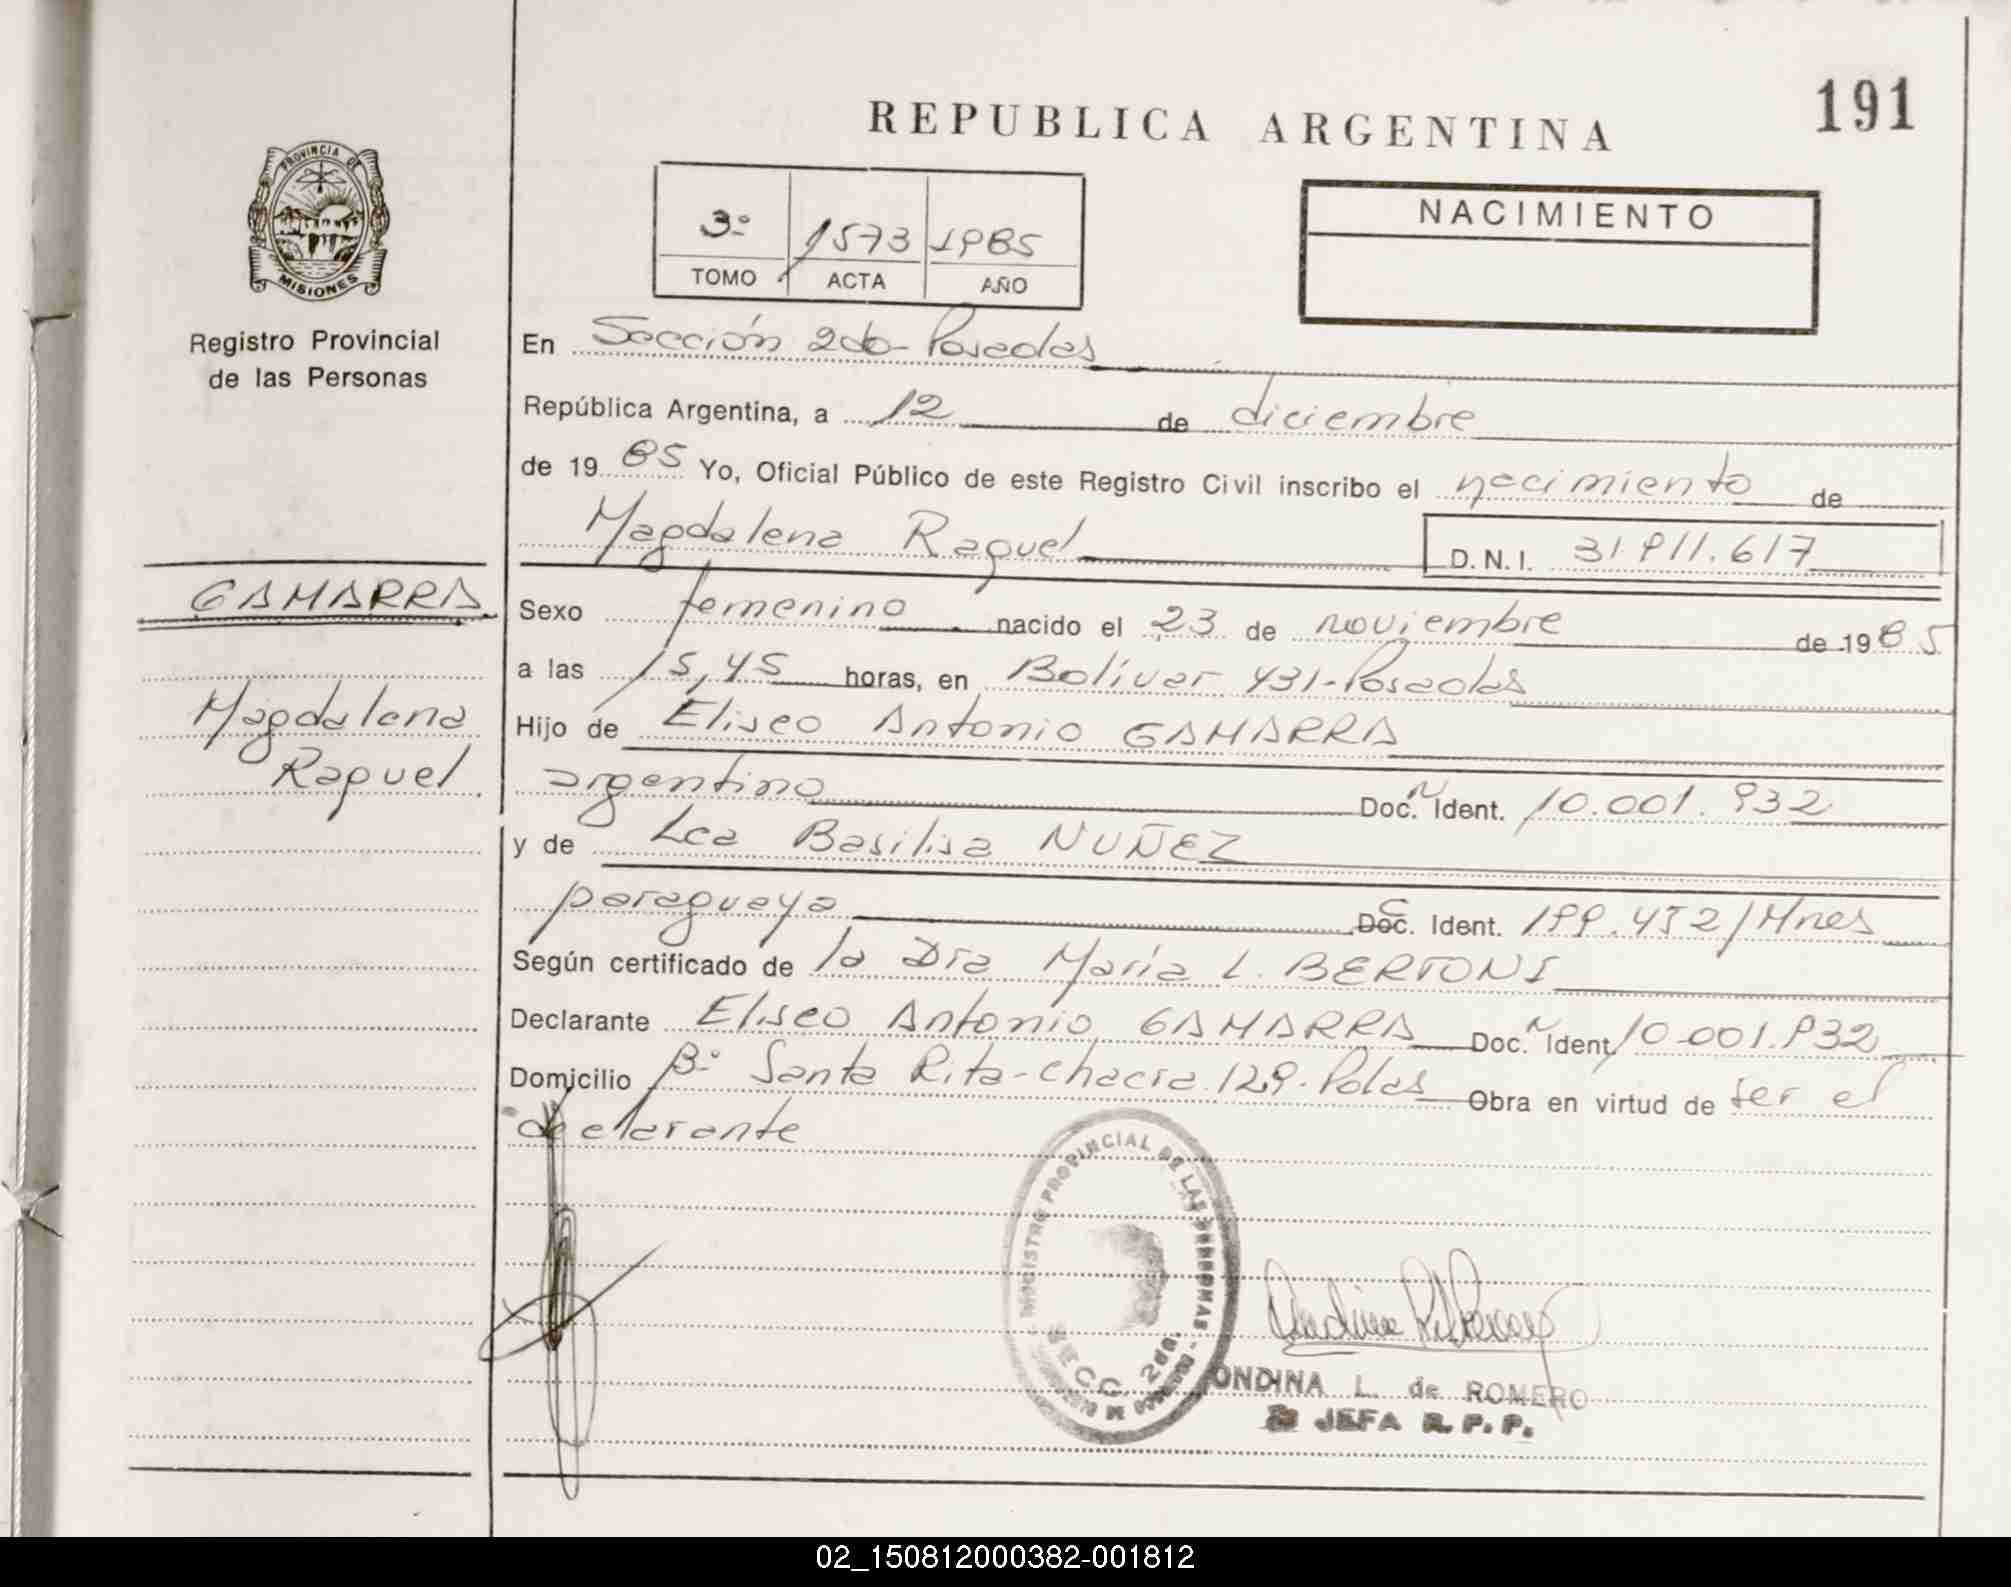 191
REPUBLICA ARGENTINA
PROVINCIA DE
MISIONES
Registro Provincial
de las Personas
3º 1573 1985
TOMO ACTA AÑO
NACIMIENTO
En Sección 2da- Posadas
República Argentina, a 12 de diciembre
de 19 85 Yo, Oficial Público de este Registro Civil inscribo el nacimiento de
Magdalena Raquel D.N.I. 31.911.617
GAMARRA
Magdalena
Raquel
Sexo femenino nacido el 23 de noviembre de 1985
a las 15,45 horas, en Bolívar 431-Posadas
Hijo de Eliseo Antonio GAMARRA
argentino Doc. N Ident. 10.001.932
y de Lea Basilisa NUÑEZ
paraguaya Doc. C Ident. 199.452/Mnes
Según certificado de la Dra María L. BERTONI
Declarante Eliseo Antonio GAMARRA Doc. N Ident 10.001.932
Domicilio Bº Santa Rita-chacra 129-Pdas Obra en virtud de ser el
declarante
REGISTRO PROVINCIAL DE LAS PERSONAS
SECC. 2da.
ONDINA L. de ROMERO
JEFA R. P. P.
02_150812000382-001812